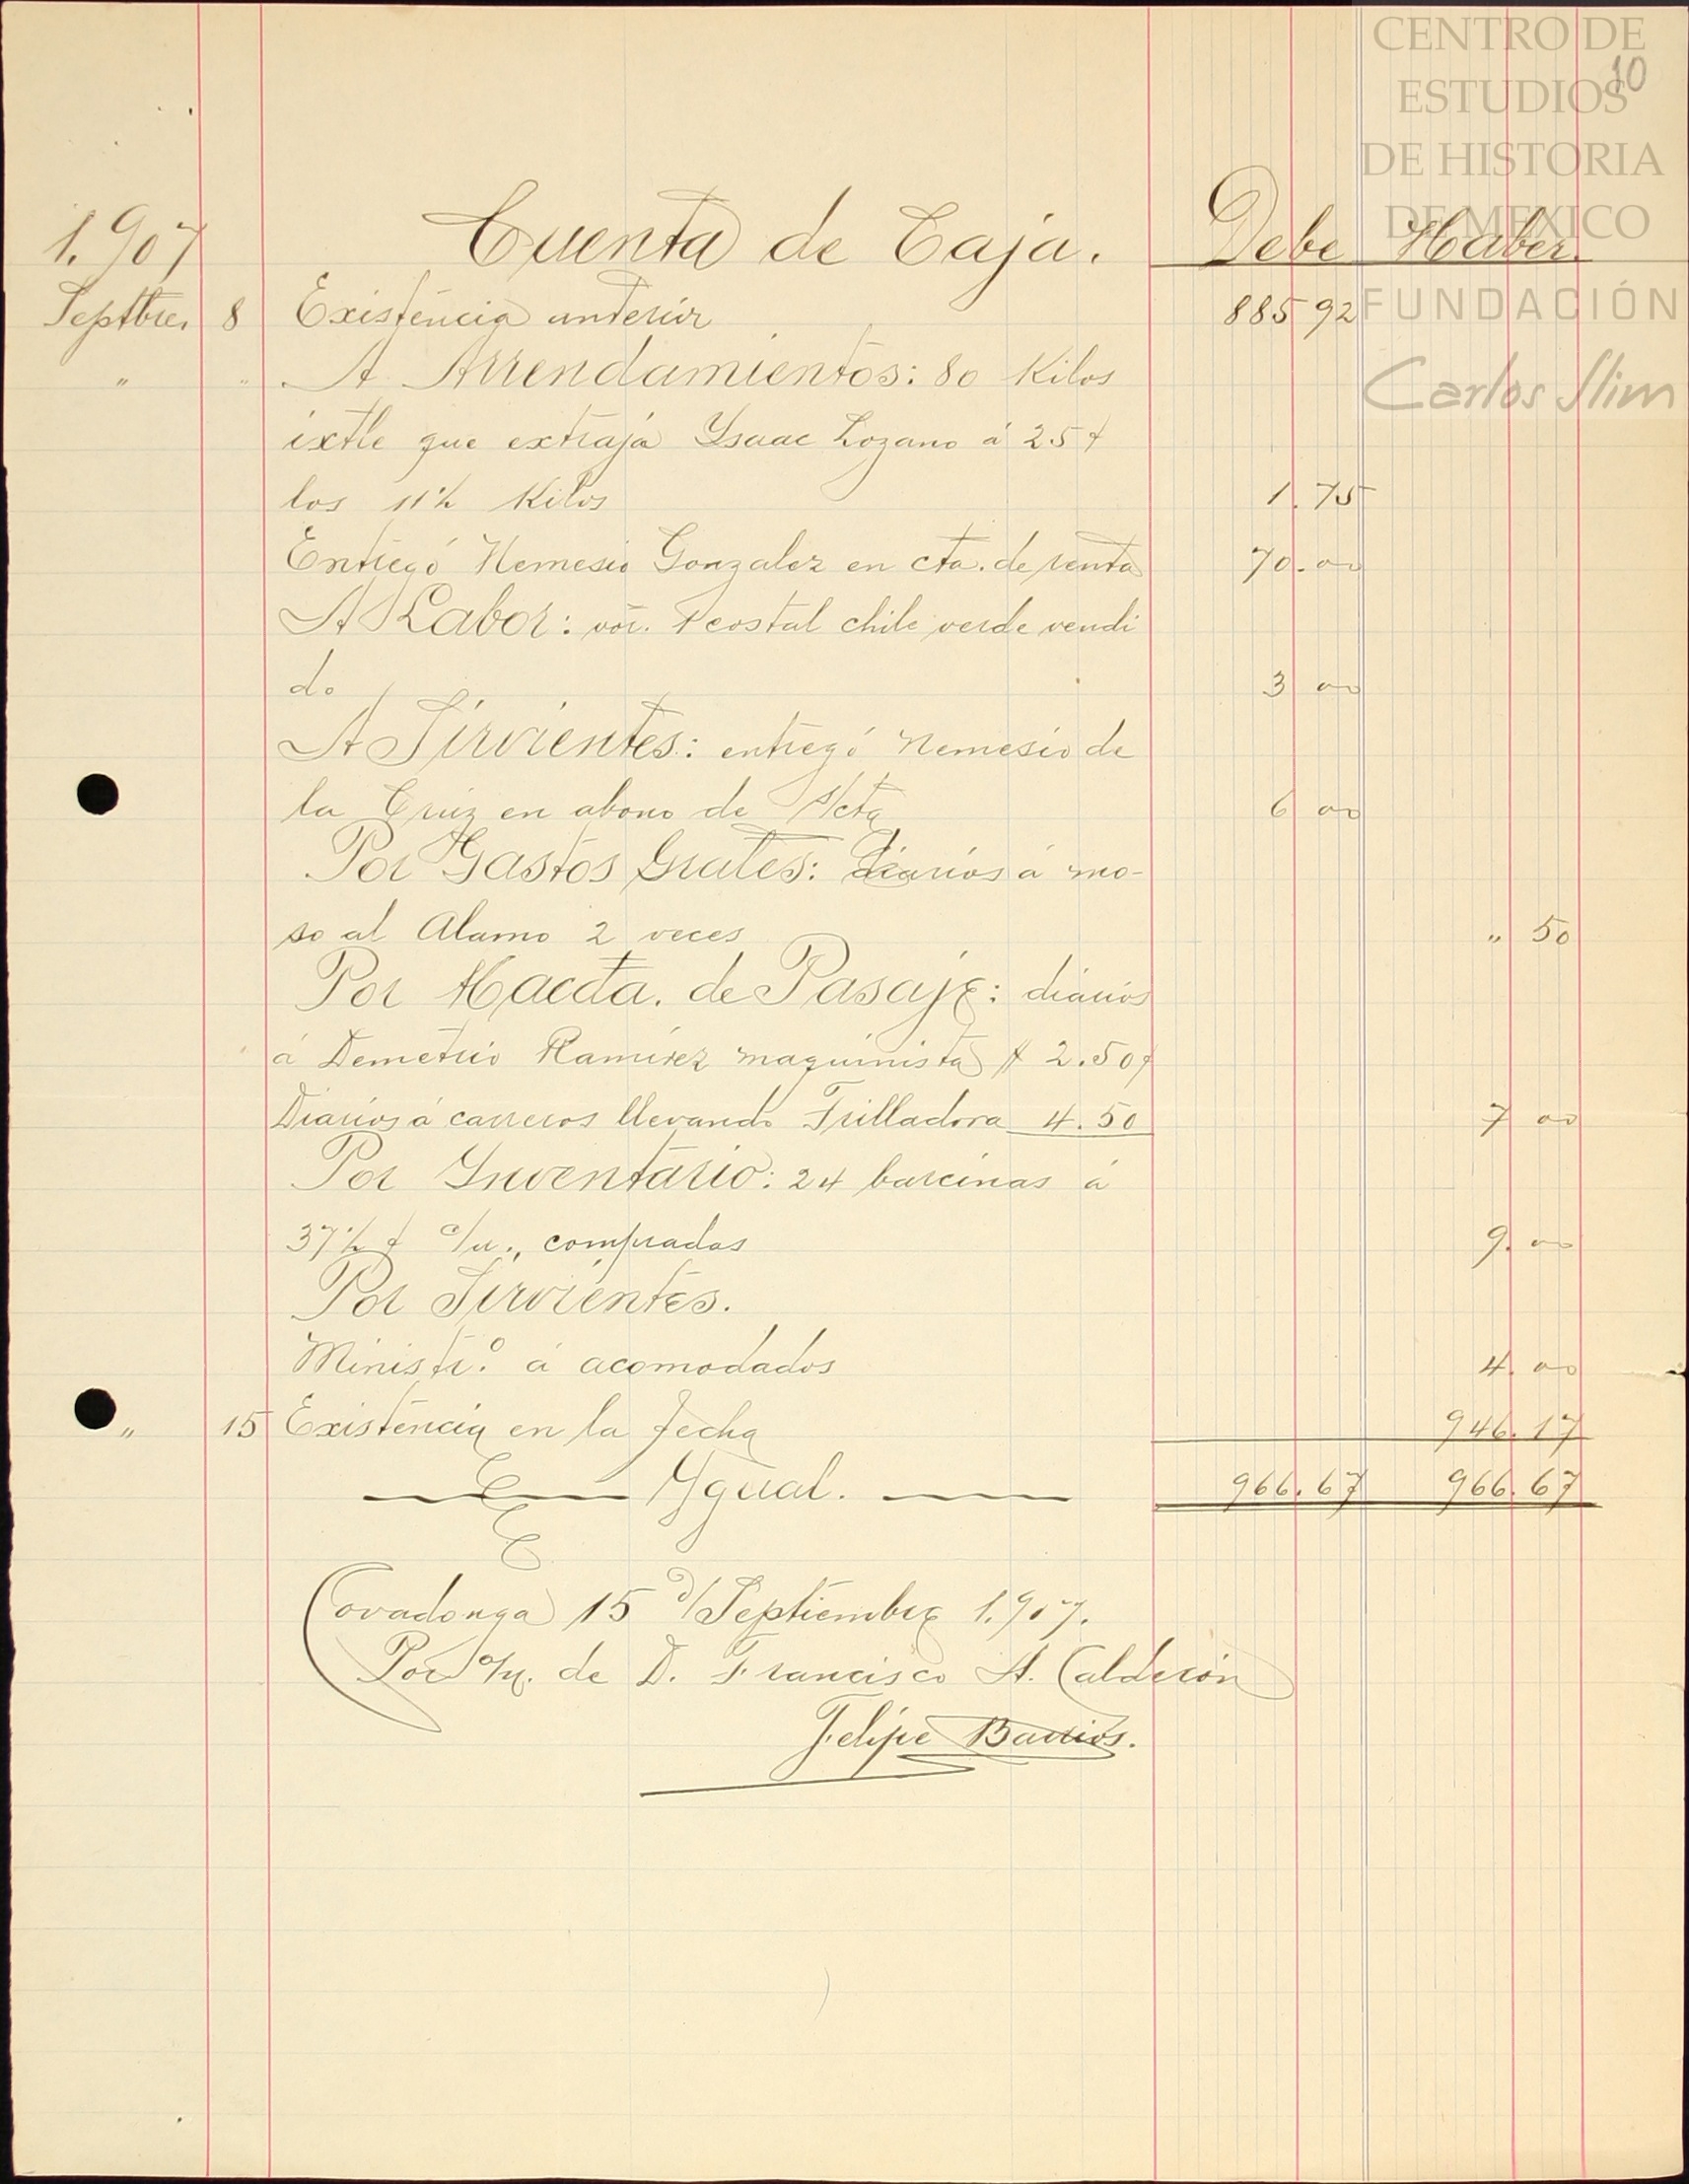 CENTRO DE
ESTUDIOS
DE HISTORIA
DE MEXICO
FUNDACIÓN
Carlos Slim
10
1.907 Cuenta de Caja. Debe Haber.
Septbre. 8 Existencia anterior 885 92
" " A Arrendamientos: 80 Kilos
ixtle que extrajo Ysaac Lozano á 25 ¢
los 11½ Kilos 1.75
Entregó Nemesio Gonzalez en cta. de renta 70.00
A Labor: vor. 1 costal chile verde vendi
do 3 00
A Sirvientes: entregó Nemesio de
la Cruz en abono de s/cta 6 00
Por Gastos Grales: diarios á mo-
so al Alamo 2 veces " 50
Por Hacda. de Pasaje: diarios
á Demetrio Ramirez maquinista $ 2.50
Diarios á carreros llevando Trilladora 4.50 7 00
Por Ynventario: 24 barcinas á
37½ ¢ c/u., compradas 9.00
Por Sirvientes.
Ministr.º á acomodados 4.00
" 15 Existencia en la fecha 946.17
Ygual. 966.67 966.67
Covadonga 15 d/ Septiembre 1.907.
Por de D. Francisco A. Calderón
Felipe Barrios.